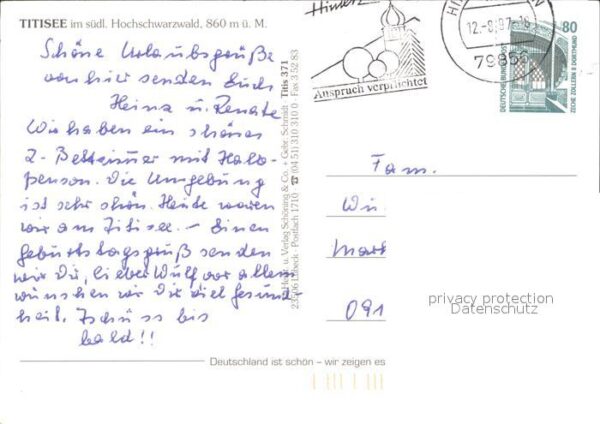 TITISEE im südl. Hochschwarzwald, 860 m ü. M.
Schöne Urlaubsgrüße
von hier senden Euch
Heinz u. Renate
Wir haben ein schönes
2-Bettzimmer mit Halb-
pension. Die Umgebung
ist sehr schön. Heute waren
wir am Titisee. – Einen
Geburtstagsgruß senden
wir Dir, lieber Wulf vor allem
wünschen wir Dir viel Gesund-
heit. Tschüss bis
bald!!
Deutschland ist schön – wir zeigen es
u. Verlag Schöning & Co. + Gebr. Schmidt Titis 371
Lübeck · Postfach 1710 · ☎ (04 51) 310 310 0 · Fax 3 52 83
Anspruch verpflichtet
12.-8.97.-16
7985
80
DEUTSCHE BUNDESPOST
ZECHE ZOLLERN II DORTMUND
Fam.
Wu
Mark
091
privacy protection
Datenschutz